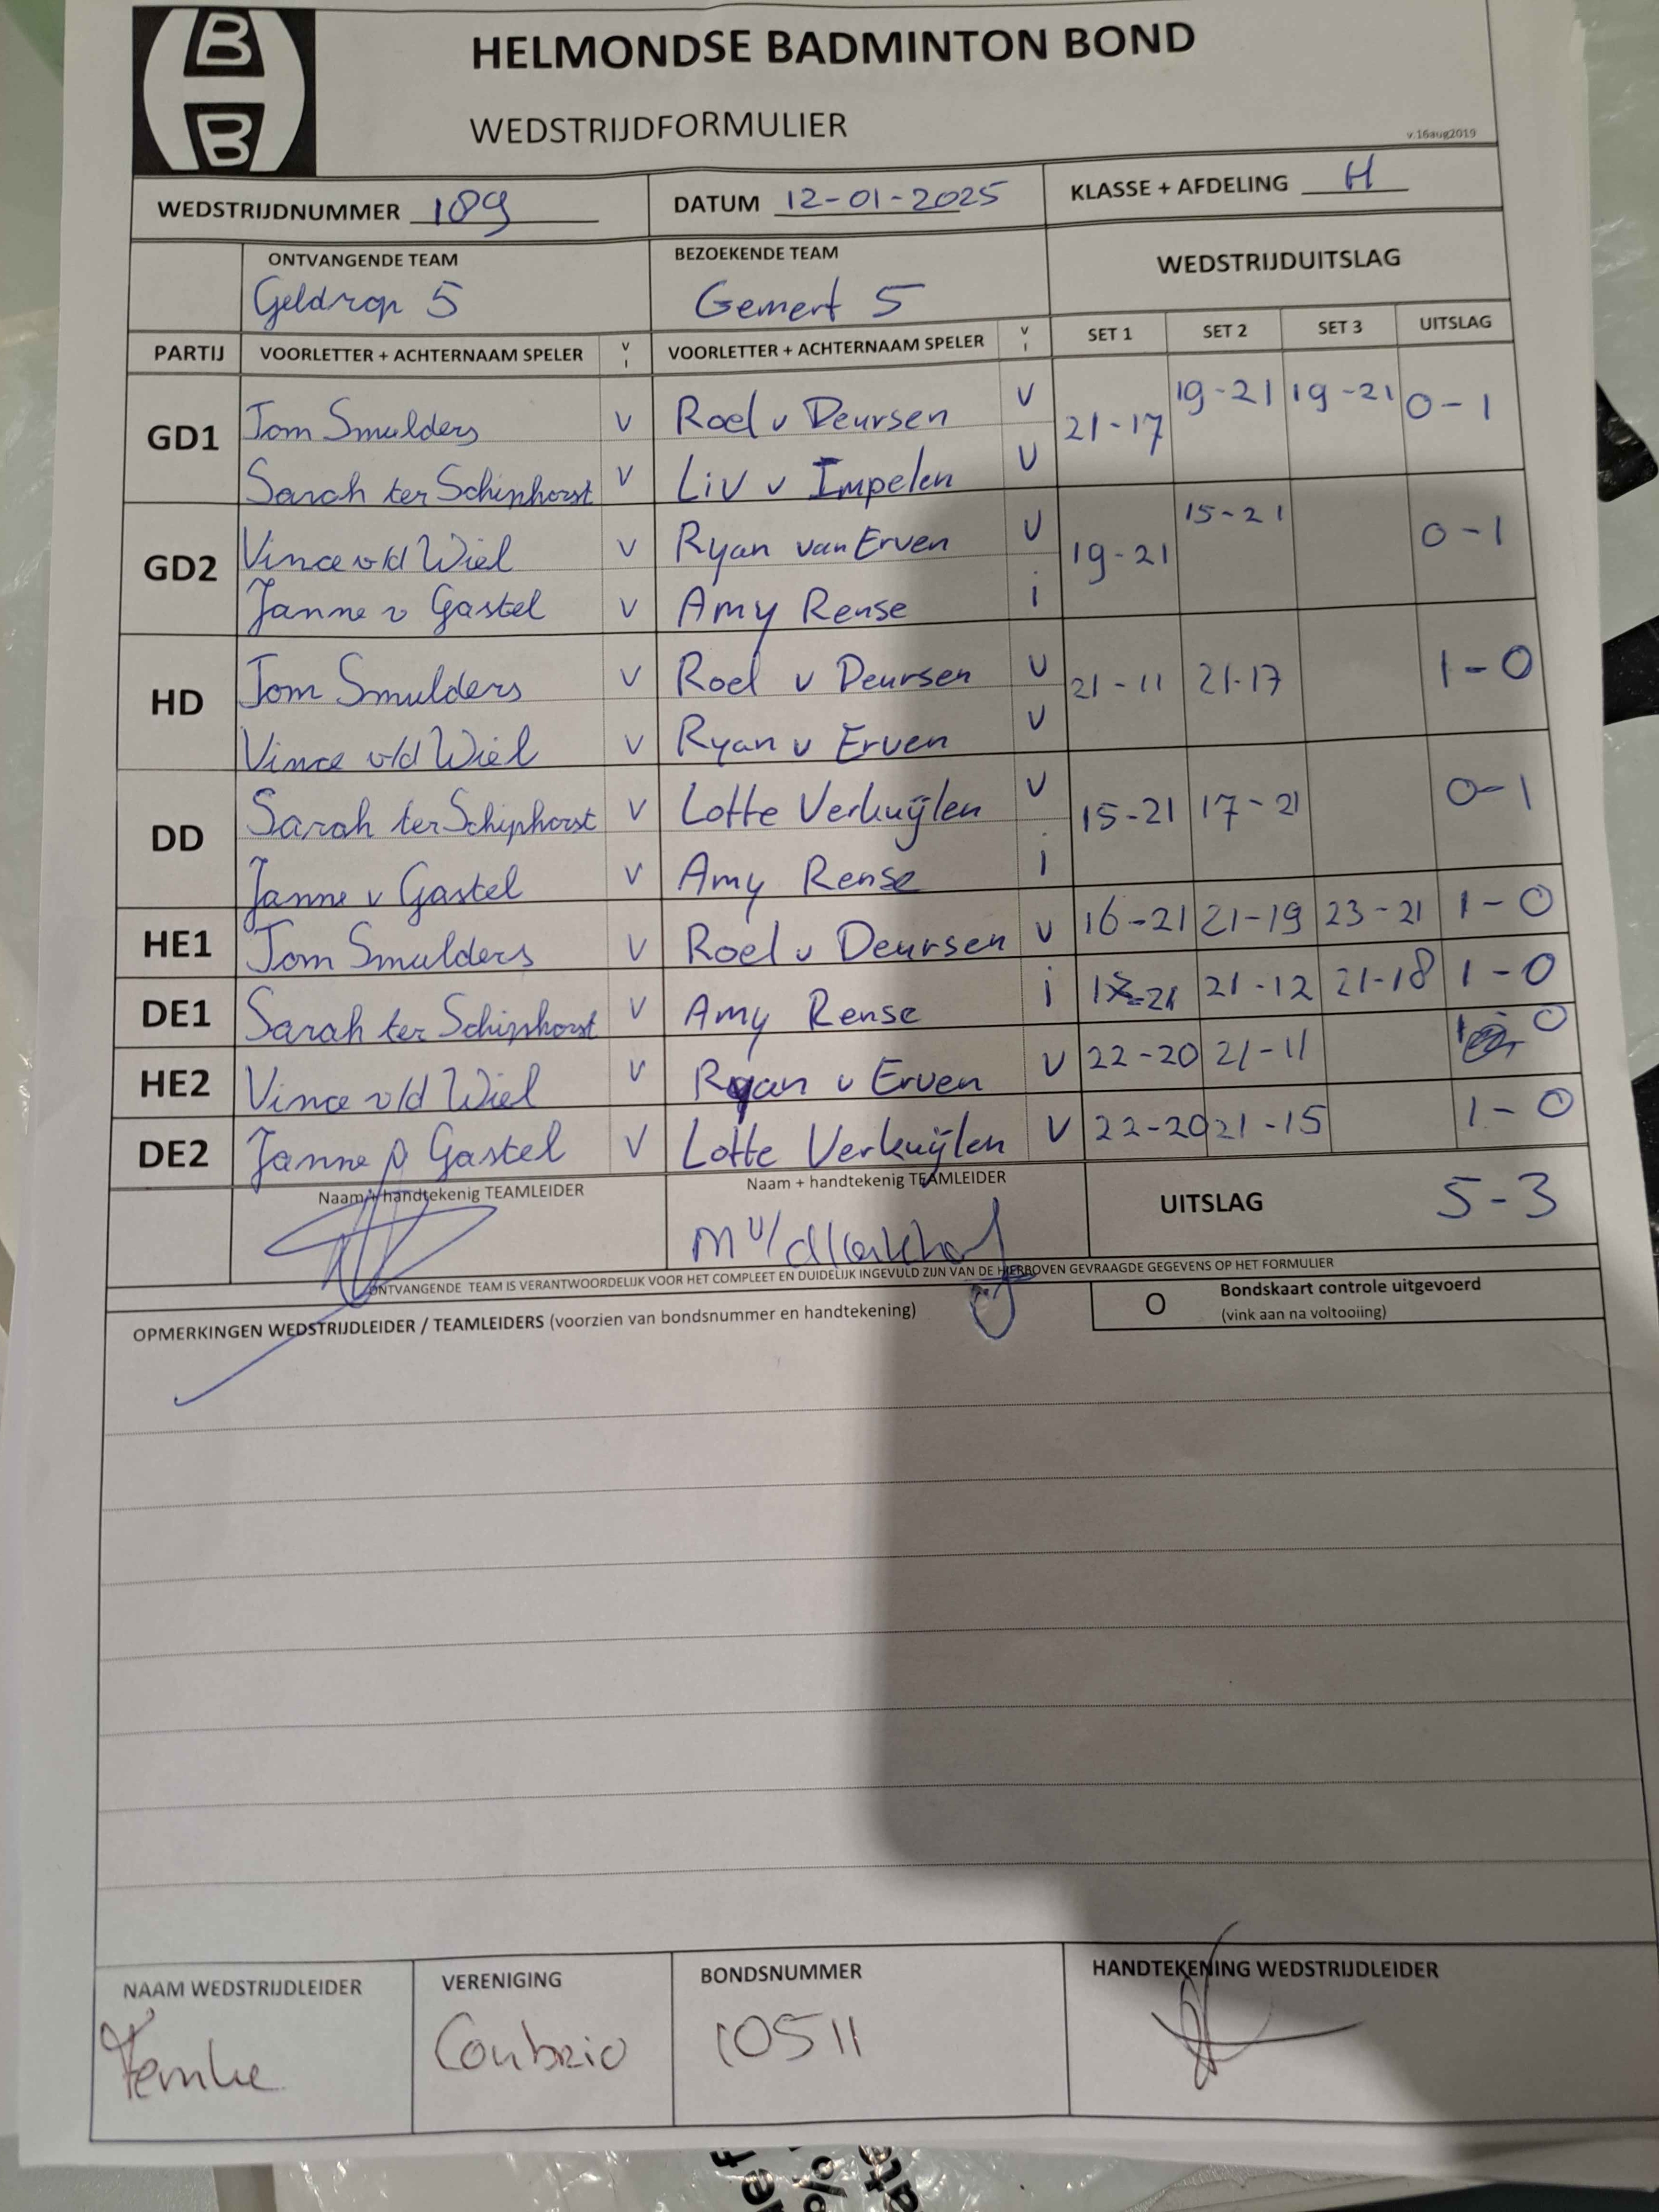 B
B
HELMONDSE BADMINTON BOND
WEDSTRIJDFORMULIER
v.16aug2019
WEDSTRIJDNUMMER 189 DATUM 12-01-2025 KLASSE + AFDELING H
ONTVANGENDE TEAM BEZOEKENDE TEAM WEDSTRIJDUITSLAG
Geldrop 5 Gemert 5
PARTIJ VOORLETTER + ACHTERNAAM SPELER V I VOORLETTER + ACHTERNAAM SPELER V I SET 1 SET 2 SET 3 UITSLAG
GD1 Tom Smulders V Roel v Deursen V 21-17 19-21 19-21 0-1
Sarah ter Schiphorst V Liv v Impelen V
GD2 Vince v/d Wiel V Ryan van Erven V 19-21 15-21 0-1
Janne v Gastel V Amy Rense i
HD Tom Smulders V Roel v Deursen V 21-11 21-17 1-0
Vince v/d Wiel V Ryan v Erven V
DD Sarah ter Schiphorst V Lotte Verkuijlen V 15-21 17-21 0-1
Janne v Gastel V Amy Rense i
HE1 Tom Smulders V Roel v Deursen V 16-21 21-19 23-21 1-0
DE1 Sarah ter Schiphorst V Amy Rense i 21-12 21-18 1-0
HE2 Vince v/d Wiel V Ryan v Erven V 22-20 21-11 1 0
DE2 Janne v Gastel V Lotte Verkuijlen V 22-20 21-15 1-0
Naam + handtekenig TEAMLEIDER Naam + handtekenig TEAMLEIDER UITSLAG 5-3
ONTVANGENDE TEAM IS VERANTWOORDELIJK VOOR HET COMPLEET EN DUIDELIJK INGEVULD ZIJN VAN DE HIERBOVEN GEVRAAGDE GEGEVENS OP HET FORMULIER
OPMERKINGEN WEDSTRIJDLEIDER / TEAMLEIDERS (voorzien van bondsnummer en handtekening) O Bondskaart controle uitgevoerd
(vink aan na voltooiing)
NAAM WEDSTRIJDLEIDER VERENIGING BONDSNUMMER HANDTEKENING WEDSTRIJDLEIDER
Femke Conbrio 10511